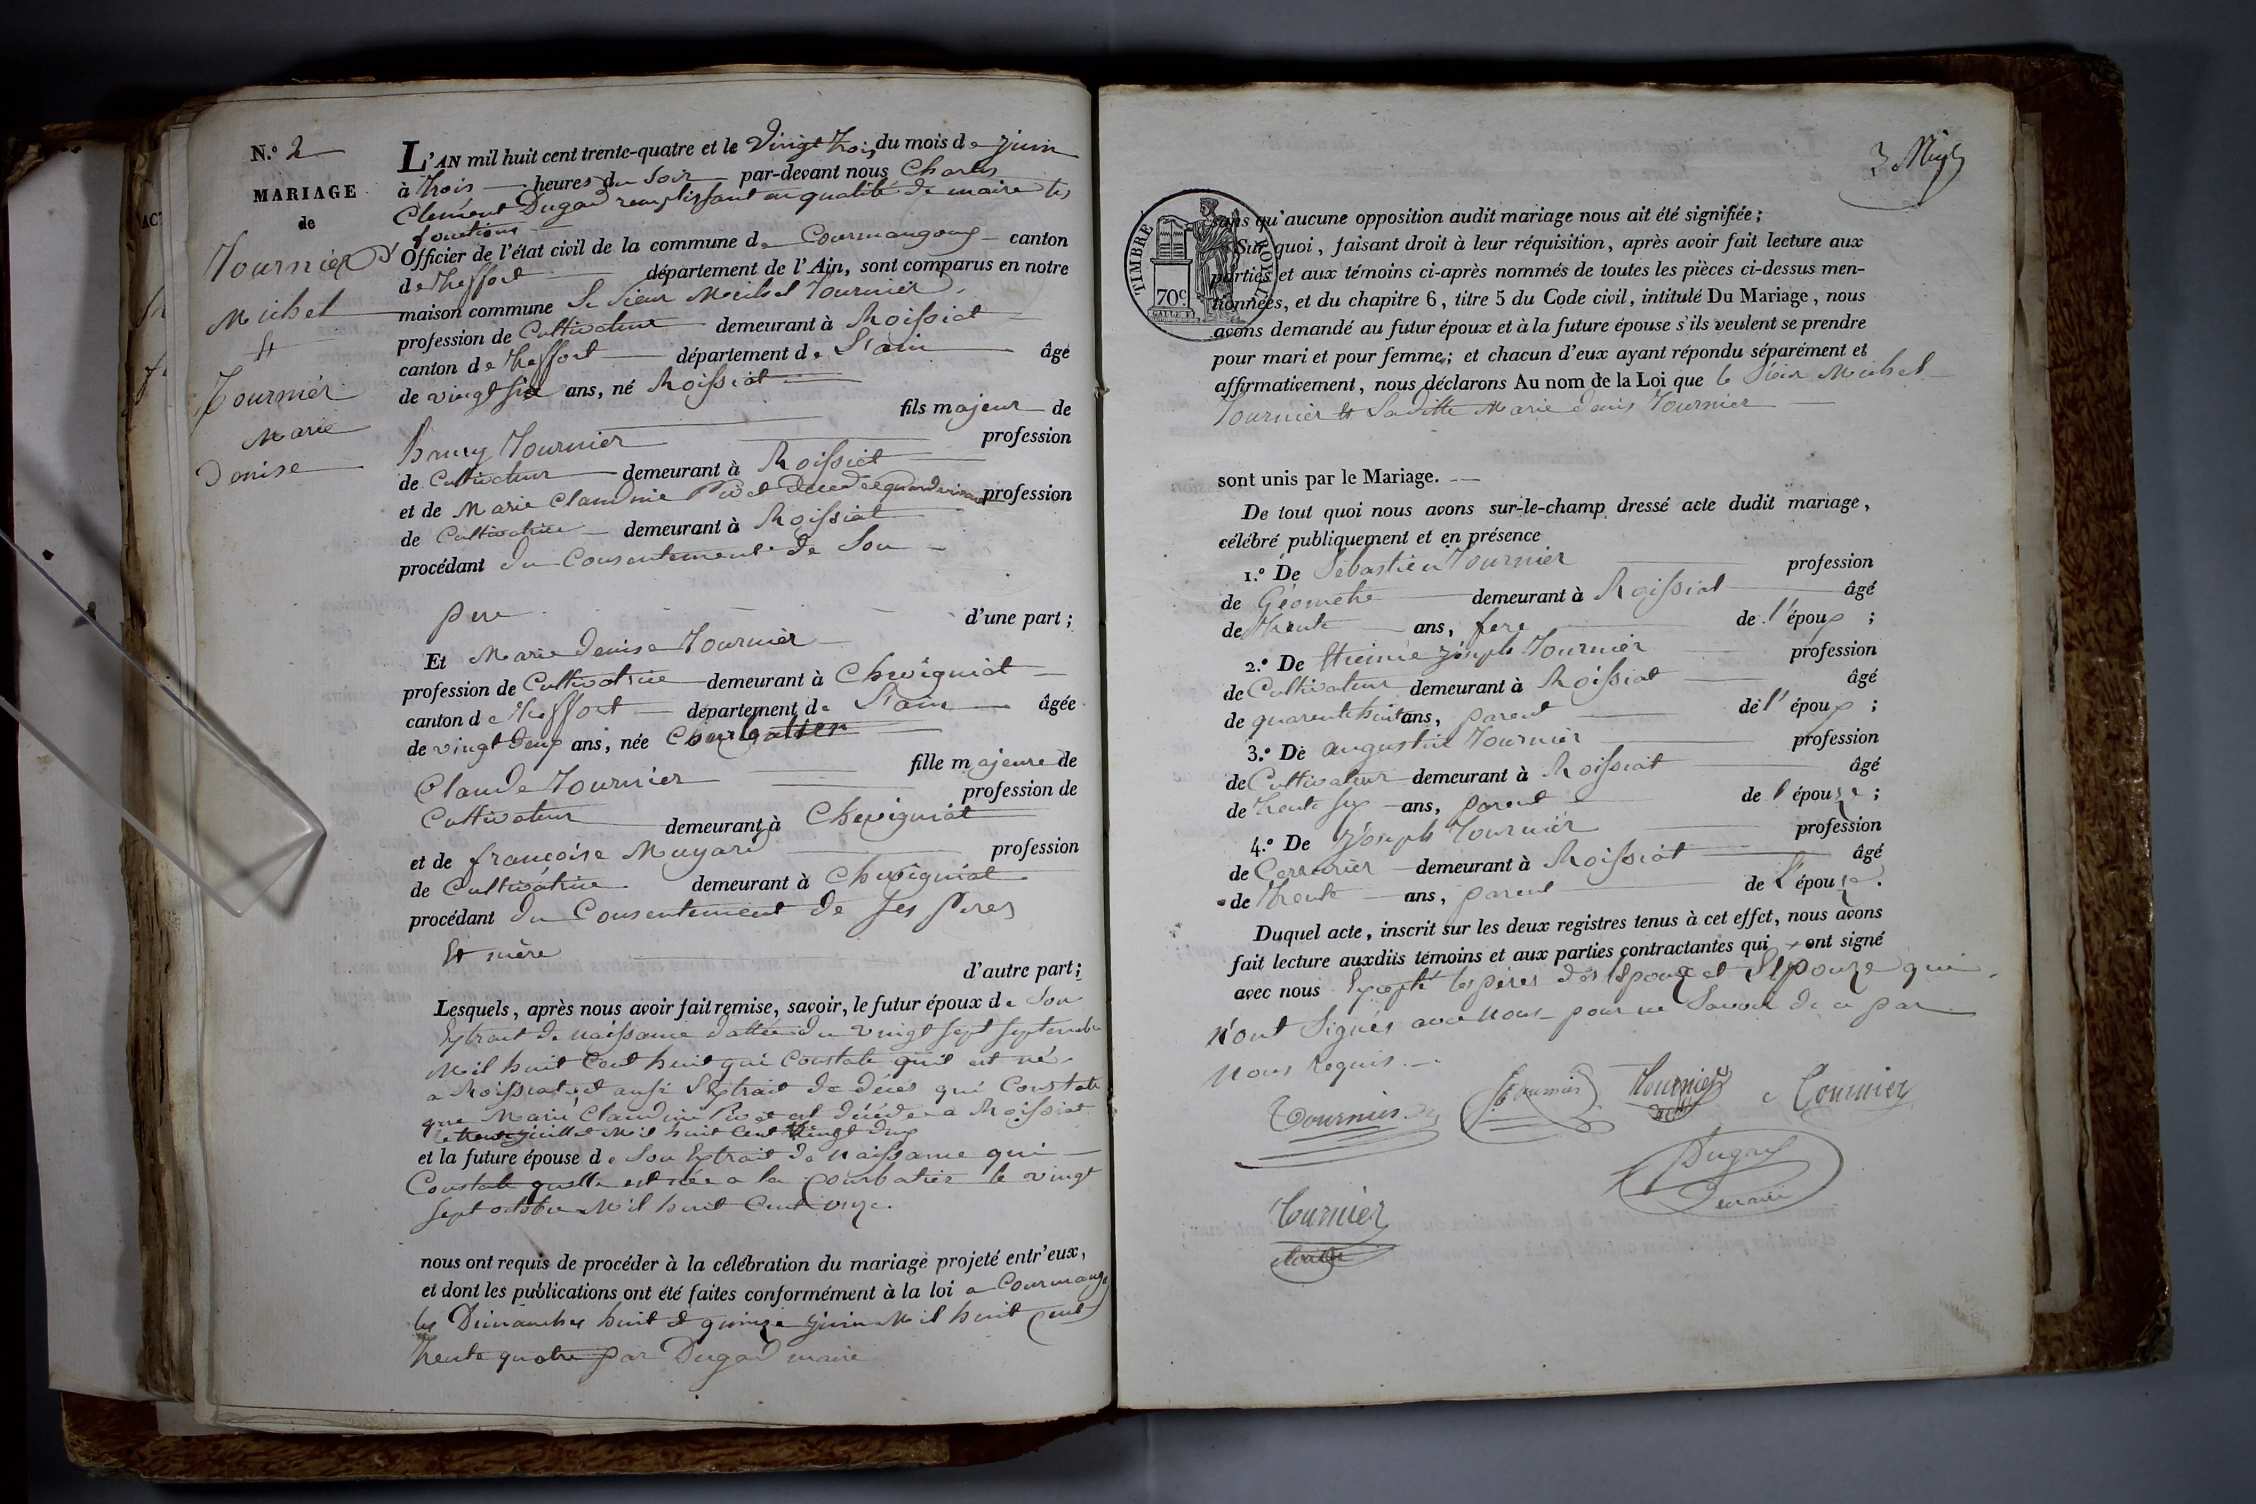 N.° 2
MARIAGE
de
Tournier
Michel
et
Tournier
Marie
Denise
L'AN mil huit cent trente-quatre et le vingt trois du mois de juin
à trois heures du soir par-devant nous Charles
Clément Dugad remplissant en qualité de maire les
fonctions
d'Officier de l'état civil de la commune de Courmangoux canton
de Treffort département de l'Ain, sont comparus en notre
maison commune le sieur Michel Tournier
profession de Cultivateur demeurant à Roissiat
canton de Treffort département de l'ain âgé
de vingt six ans, né Roissiat
fils majeur de
Tournier profession
de Cultivateur demeurant à Roissiat
et de Marie Claudine décédée profession
de Cultivatrice demeurant à Roissiat
procédant du Consentement de Son
pere d'une part;
Et Marie denise Tournier
profession de Cultivatrice demeurant à Chevigniat
canton de Treffort département de l'ain âgée
de vingt deux ans, née
fille majeure de
Claude Tournier profession de
Cultivateur demeurant à Chevigniat
et de françoise Muyard profession
de Cultivatrice demeurant à Chevigniat
procédant du Consentement de ses peres
Et mère
d'autre part;
Lesquels, après nous avoir fait remise, savoir, le futur époux de Son
Extrait de naissance dattée du vingt sept septembre
Mil huit Cent huit qui Constate qu'il est né
a Roissiat, et ausi l'Extrait de décès qui Constate
que Marie Claudine est décédée a Roissiat
juillet Mil huit Cent vingt deux
et la future épouse de Son Extrait de naissance qui
Constate quelle est née a la Courbatier le vingt
sept octobre Mil huit Cent onze.
nous ont requis de procéder à la célébration du mariage projeté entr'eux,
et dont les publications ont été faites conformément à la loi a Courmangoux
les Dimanches huit et quinze juin Mil huit Cent
trente quatre par Dugad maire
TIMBRE ROYAL
70c.
sans qu'aucune opposition audit mariage nous ait été signifiée;
Sur quoi, faisant droit à leur réquisition, après avoir fait lecture aux
parties et aux témoins ci-après nommés de toutes les pièces ci-dessus men-
tionnées, et du chapitre 6, titre 5 du Code civil, intitulé Du Mariage, nous
avons demandé au futur époux et à la future épouse s'ils veulent se prendre
pour mari et pour femme; et chacun d'eux ayant répondu séparément et
affirmativement, nous déclarons Au nom de la Loi que le sieur Michel
Tournier et Laditte Marie denis Tournier
sont unis par le Mariage.
De tout quoi nous avons sur-le-champ dressé acte dudit mariage,
célébré publiquement et en présence
1.° De Sébastien Tournier profession
de Géomètre demeurant à Roissiat âgé
de trente ans, frere de l'époux;
2.° De Joseph Tournier profession
de Cultivateur demeurant à Roissiat âgé
de quarente huit ans, parent de l'époux;
3.° De augustin Tournier profession
de Cultivateur demeurant à Roissiat âgé
de trente six ans, parent de l'épouze;
4.° De Joseph Tournier profession
de demeurant à Roissiat âgé
de trente ans, parent de l'épouze.
Duquel acte, inscrit sur les deux registres tenus à cet effet, nous avons
fait lecture auxdits témoins et aux parties contractantes qui ont signé
avec nous Excepté les pères des Epoux et l'Epouze qui
n'ont Signés avec nous pour ne Savoir de ce par
Nous Requis.
Tournier
Tournier
Tournier
Tournier
Dugad
maire
Tournier